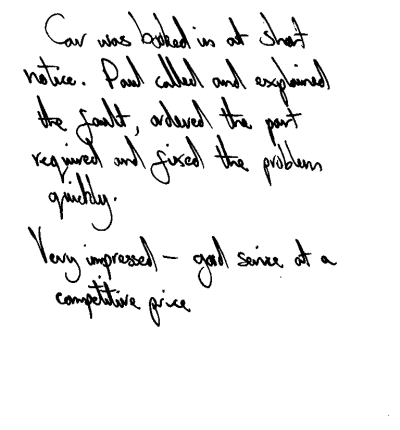 Car was booked in at short
notice. Paul called and explained
the fault, ordered the part
required and fixed the problem
quickly.
Very impressed – good service at a
competitive price